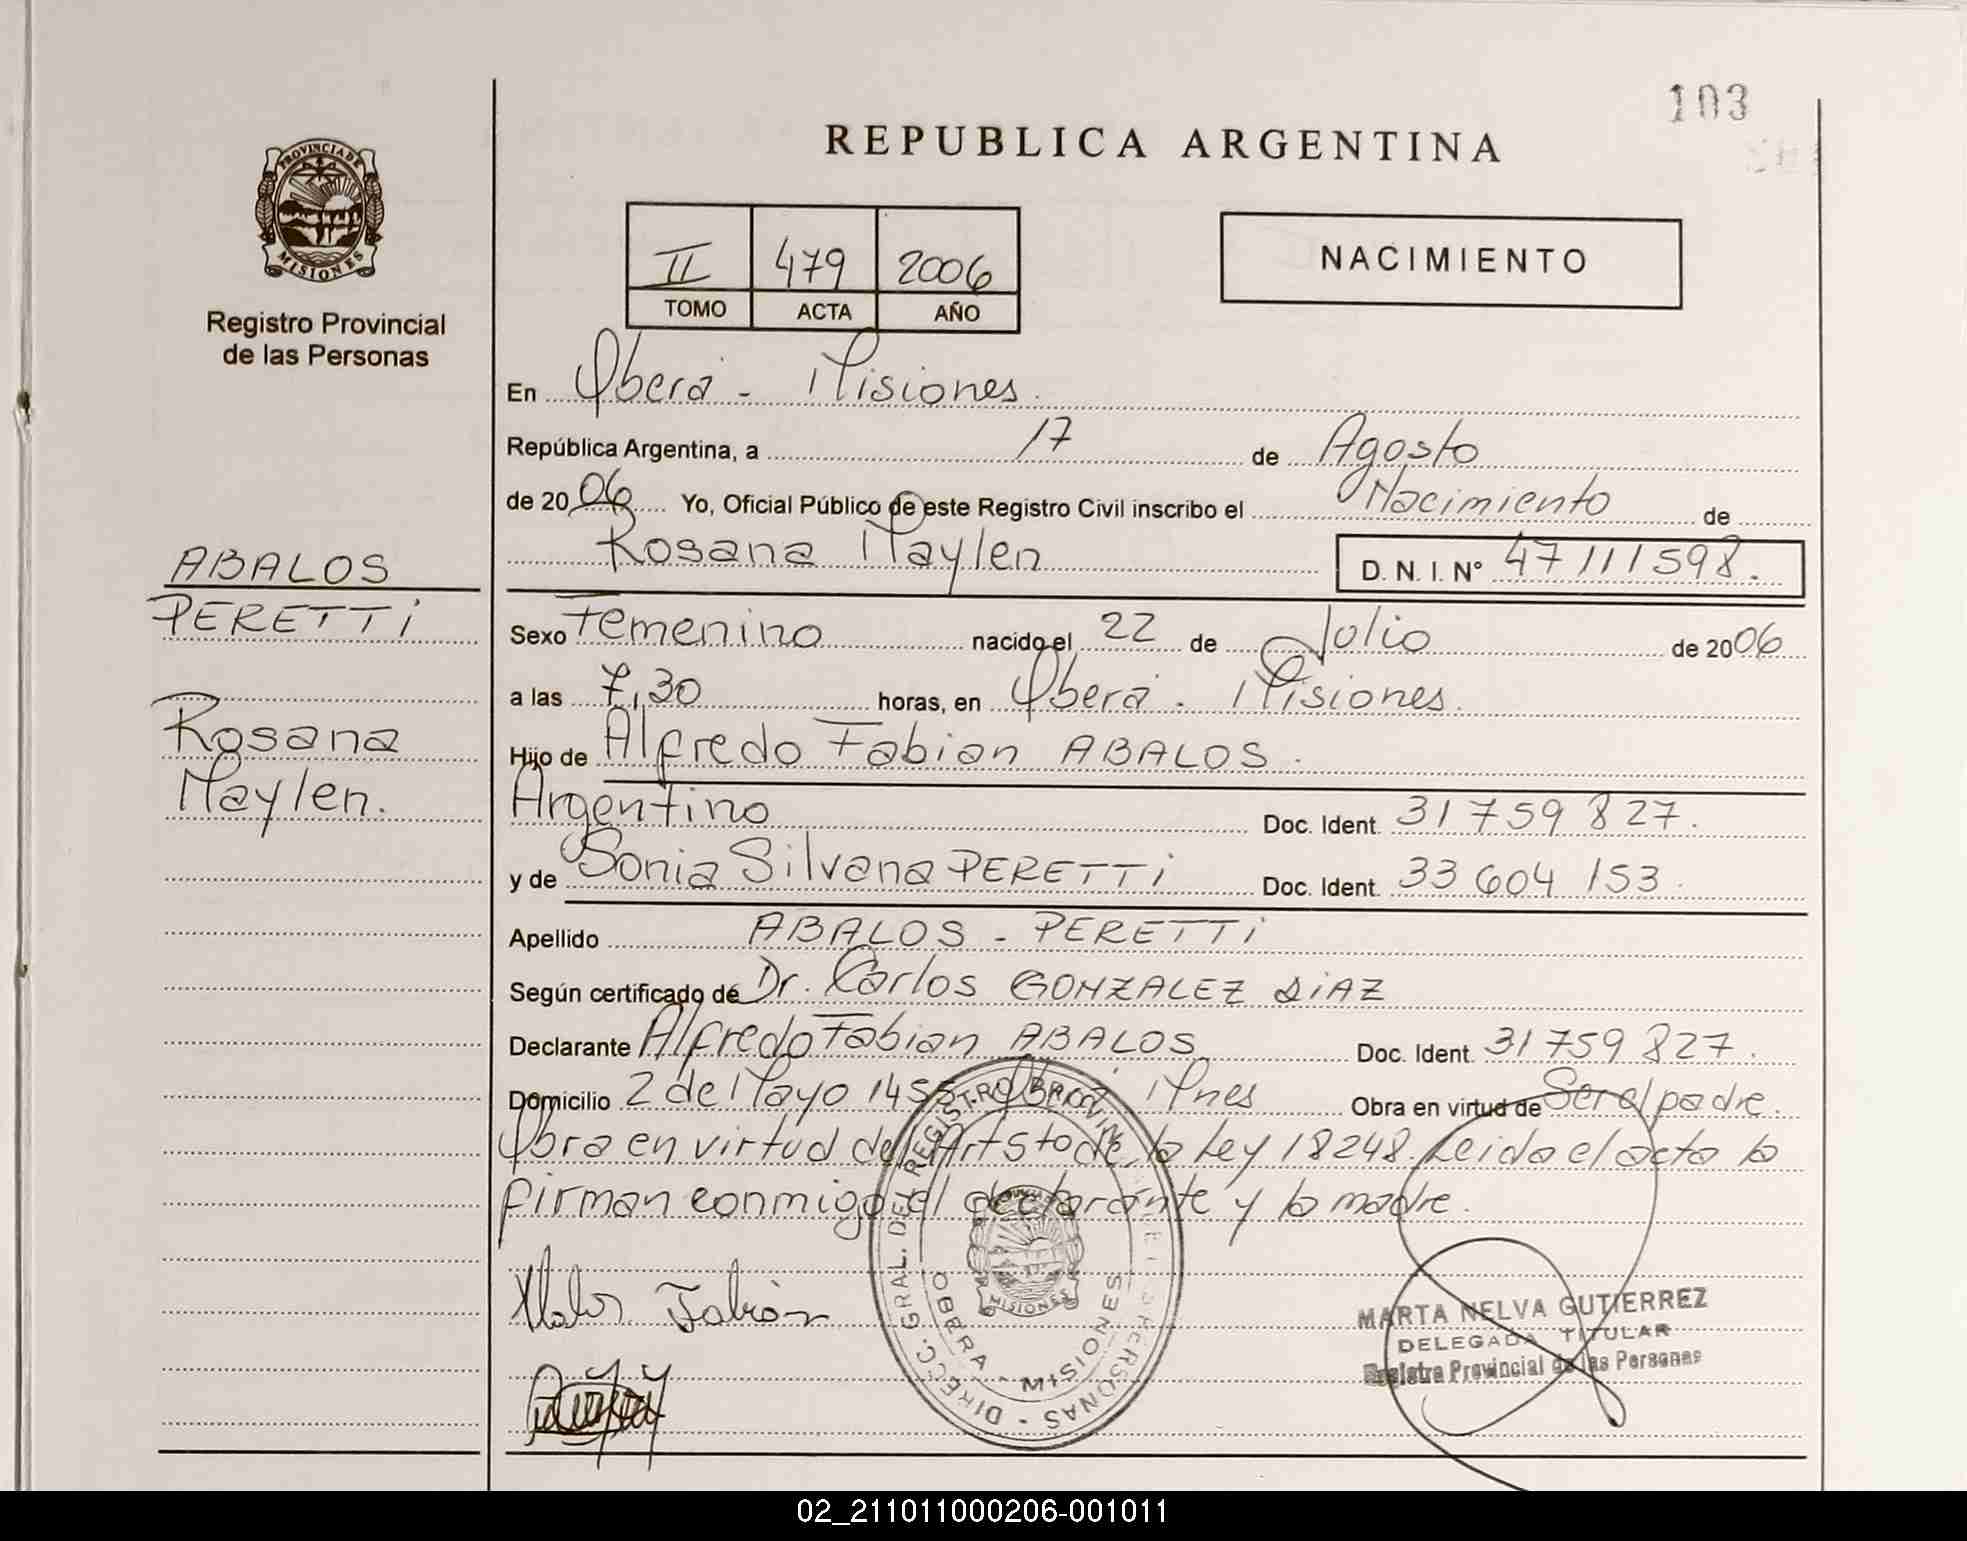 103
REPUBLICA ARGENTINA
PROVINCIA DE
MISIONES
Registro Provincial
de las Personas
II 479 2006
TOMO ACTA AÑO
NACIMIENTO
En Oberá - Misiones.
República Argentina, a 17 de Agosto
de 2006 Yo, Oficial Público de este Registro Civil inscribo el Nacimiento de
Rosana Maylen D. N. I. N° 47111598.
ABALOS
PERETTI
Rosana
Maylen.
Sexo Femenino nacido el 22 de Julio de 2006
a las 7,30 horas, en Oberá - Misiones.
Hijo de Alfredo Fabian ABALOS.
Argentino Doc. Ident. 31 759 827.
y de Sonia Silvana PERETTI Doc. Ident. 33 604 153.
Apellido ABALOS - PERETTI
Según certificado de Dr. Carlos GONZALEZ DIAZ
Declarante Alfredo Fabian ABALOS Doc. Ident. 31 759 827.
Domicilio 2 de Mayo 1455 - Oberá Mnes Obra en virtud de Ser el padre.
Obra en virtud del Art 5to de la Ley 18248. Leido el acta la
firman conmigo el declarante y la madre.
Fabián
DIRECC. GRAL. DEL REGISTRO PROVINCIAL DE LAS PERSONAS -
OBERA - MISIONES
MISIONES
MARTA NELVA GUTIERREZ
DELEGADA TITULAR
Registro Provincial de las Personas
02_211011000206-001011